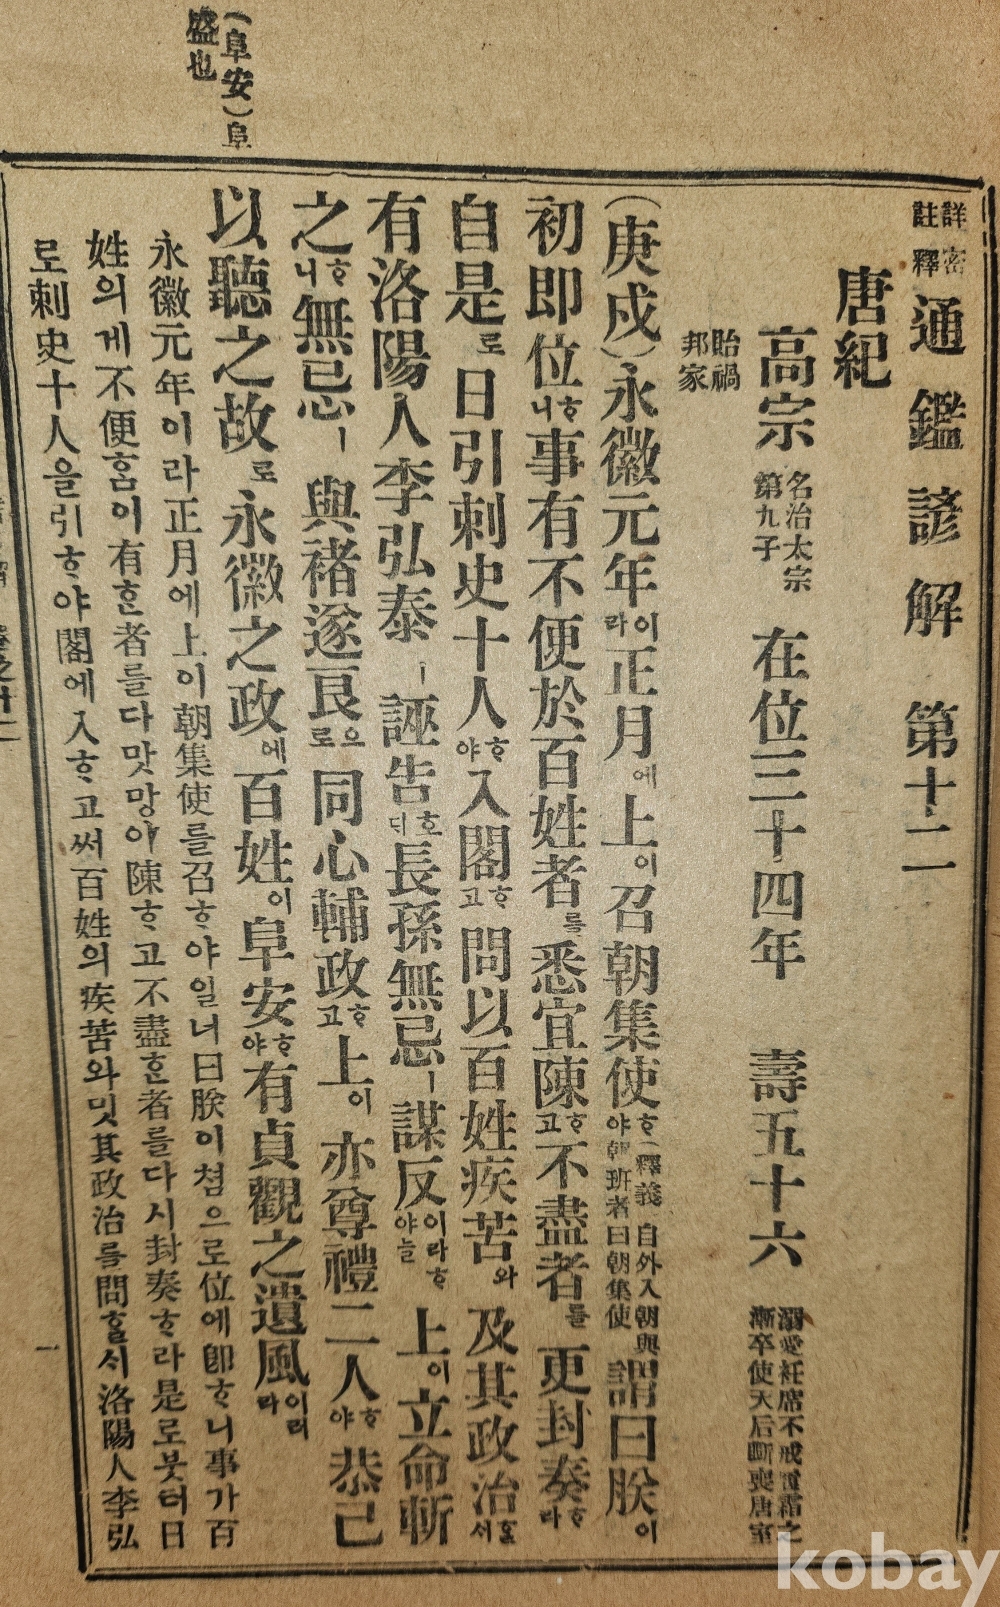 詳密註釋通鑑諺解 第十二
唐紀
高宗 名治太宗第九子 在位三十四年 壽五十六 溺愛衽席不戒霜之漸卒使天后斷喪唐室
貽禍邦家
(庚戌)永徽元年이라正月에上이召朝集使ᄒᆞ야(釋義 自外入朝與朝班者曰朝集使謂曰朕이
初即位ᄒᆞ니事有不便於百姓者를悉宜陳ᄒᆞ고不盡者를更封奏ᄒᆞ라
自是로日引刺史十人ᄒᆞ야入閤ᄒᆞ고問以百姓疾苦와及其政治ᄒᆞᆯᄉᆡ
有洛陽人李弘泰ㅣ誣告호ᄃᆡ長孫無忌ㅣ謀反이라ᄒᆞ야늘上이立命斬
之ᄒᆞ니無忌ㅣ與褚遂良으로同心輔政ᄒᆞ고上이亦尊禮二人ᄒᆞ야恭己
以聽之故로永徽之政에百姓이阜安ᄒᆞ야有貞觀之遺風이러라
永徽元年이라正月에上이朝集使를召ᄒᆞ야일너曰朕이쳠으로位에卽ᄒᆞ니事가百
姓의게不便홈이有ᄒᆞᆫ者를다맛망이陳ᄒᆞ고不盡ᄒᆞᆫ者를다시封奏ᄒᆞ라是로붓터日
로刺史十人을引ᄒᆞ야閤에入ᄒᆞ고써百姓의疾苦와밋其政治를問ᄒᆞᆯᄉᆡ洛陽人李弘
(阜安)阜
盛也
一
kobay